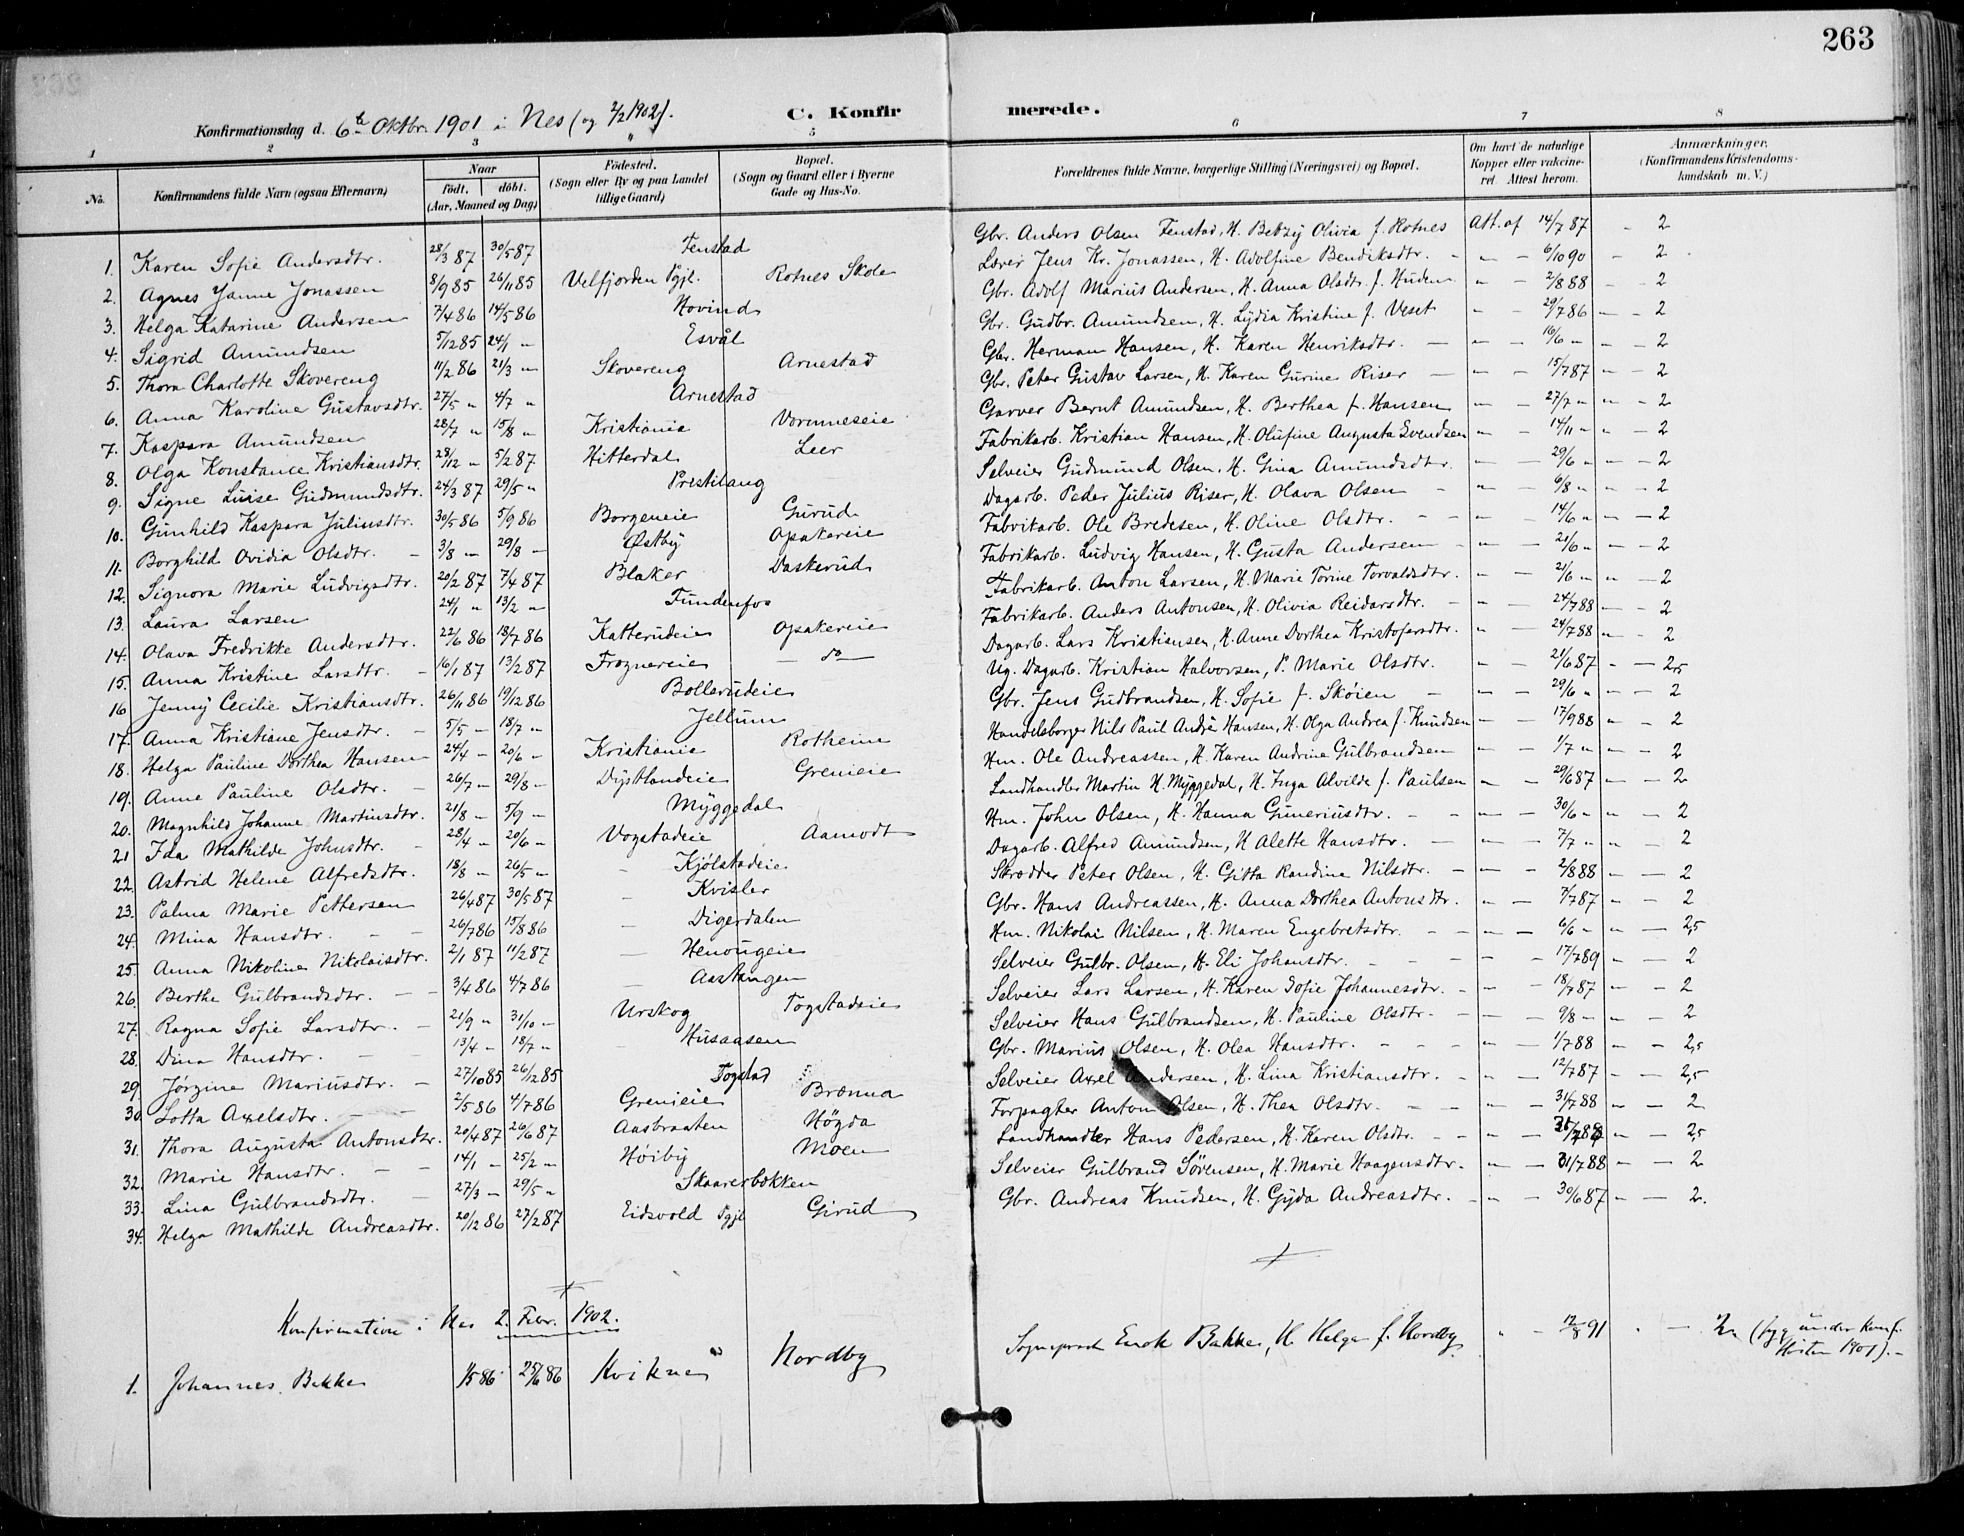 263
Konfirmationsdag d. 6te Oktbr. 1901 i Nes (og 2/2 1902).
C. Konfirmerede.
1 2 3 4 5 6 7 8
No. Konfirmandens fulde Navn (ogsaa Efternavn) Naar født. døbt. (Aar, Maaned og Dag) Fødested. (Sogn eller By og paa Landet tillige Gaard) Bopæl. (Sogn og Gaard eller i Byerne Gade og Hus-No. Forældrenes fulde Navne, borgerlige Stilling (Næringsvei) og Bopæl. Om havt de naturlige Kopper eller vakcineret. Attest herom. Anmærkninger. (Konfirmandens Kristendomskundskab m. V.)
1. Karen Sofie Andersdtr. 28/3 87 30/5 87 Fenstad Gbr. Anders Olsen Fenstad, H. Betzy Olivia f. Rotnes Att. af 14/7 87 - 2
2. Agnes Janne Jonassen 8/9 85 26/11 85 Velfjorden Pgjl. Rotnes Skole Lærer Jens Kr. Jonassen, H. Adolfine Bendiksdtr. - - 6/10 90 - 2
3. Helga Katarine Andersen 7/4 86 14/5 86 Hovind Gbr. Adolf Marius Andersen, H. Anna Olsdtr. f. Huden " - 2/8 88 - - 2
4. Sigrid Amundsen 5/12 85 24/1 " Esvål Gbr. Gudbr. Amundsen, H. Lydia Kristine f. Veset " - 29/7 86 - - 2
5. Thora Charlotte Skovereng 11/2 86 21/3 " Skovereng Arnestad Gbr. Herman Hansen, H. Karen Henriksdtr. - " - 16/6 " " - 2
6. Anna Karoline Gustavsdtr. 27/5 " 4/7 " Arnestad Gbr. Peter Gustav Larsen, H. Karen Gurine Riser - " - 15/7 87 - - 2
7. Kaspara Amundsen 28/7 " 15/8 " Kristiania Vormneseie Garver Bernt Amundsen, H. Berthea f. Hansen " - 27/7 " " - 2
8. Olga Konstance Kristiansdtr. 28/12 " 5/2 87 Hitterdal Leer Fabrikarb. Kristian Hansen, H. Olufine Augusta Svendsen " - 14/11 " - " 2
9. Signe Luise Gudmundsdtr. 24/3 87 29/5 " Prestilang Selveier Gudmund Olsen, H. Gina Amundsdtr. " - 29/6 " " - 2
10. Gunhild Kaspara Juliusdtr. 30/5 86 5/9 86 Borgeneie Gurud Dagarb. Peder Julius Riser, H. Olava Olsen - " - 6/8 " " - 2
11. Borghild Ovidia Olsdtr. - 3/8 - 29/8 - Østby Opakereie Fabrikarb. Ole Bredesen, H. Oline Olsdtr. - - " - 14/6 " " - 2
12. Signora Marie Ludvigsdtr. 20/2 87 7/4 87 Blaker Daskerud Fabrikarb. Ludvig Hansen, H. Gusta Andersen - " - 21/6 " " - 2
13. Laura Larsen 24/1 " 13/2 " Fundenfos Fabrikarb. Anton Larsen, H. Marie Torine Torvaldsdtr. " - 21/6 " " - 2
14. Olava Fredrikke Andersdtr. 22/6 86 18/7 86 Katterudeie Opakereie Fabrikarb. Anders Antonsen, H. Olivia Reidarsdtr. - " - 24/7 88 - - 2
15. Anna Kristine Larsdtr. - 16/1 87 13/2 87 Frognereie - do - Dagarb. Lars Kristiansen, H. Anne Dorthea Kristofersdtr. " - 24/7 88 " - 2
16. Jenny Cecilie Kristiansdtr. 26/11 86 19/12 86 Bollerudeie Ug. Dagarb. Kristian Halvorsen, P. Marie Olsdtr. " - 21/6 87 " - 2,5
17. Anna Kristiane Jensdtr. - 5/5 - 18/7 " Jellum Gbr. Jens Gudbrandsen, H. Sofie f. Skøien - " - 29/6 " " - 2
18. Helga Pauline Dorthea Hansen 24/4 - 20/6 - Kristiania Rotheim Handelsborger Nils Paul André Hansen, H. Olga Andrea f. Knudsen " - 17/9 88 " - 2
19. Anne Pauline Olsdtr. - 26/7 - 29/8 - Dystlandeie Grenieie Hm. Ole Andreassen, H. Karen Andrine Gulbrandsen " - 1/7 " " - 2
20. Magnhild Johanne Martinsdtr. 21/8 - 5/9 - Myggedal Landhandler Martin H. Myggedal, H. Inga Alvilde f. Paulsen " - 29/6 87 - - 2
21 Ida Mathilde Johnsdtr. - 28/4 " 20/6 - Vogstadeie Aamodt Hm. John Olsen, H. Hanna Guneriusdtr. - - " - 30/6 " " - 2
22. Astrid Helene Alfredsdtr. 18/8 - 26/5 - - Kjølstadeie Dagarb. Alfred Amundsen, H Alette Hansdtr. - " - 7/7 " " - 2
23. Palma Marie Pettersen 26/4 87 30/5 87 - Kvisler Skrædder Peter Olsen, H. Gitta Randine Nilsdtr. - " - 2/8 88 - - 2
24. Mina Hansdtr. - - 26/7 86 15/8 86 - Digerdalen Gbr. Hans Andreassen, H. Anna Dorthea Antonsdtr. " - 7/7 87 - - 2
25. Anna Nikoline Nikolaisdtr. 2/1 87 11/2 87 - Henougeie Hm. Nikolai Nilsen, H. Maren Engebretsdtr. - - " - 6/6 " - " 2,5
26. Berthe Gulbrandsdtr. - - 3/4 86 4/7 86 - Aastangen Selveier Gulbr. Olsen, H. Eli Johansdtr. - - - - 17/7 89 - - 2
27. Ragna Sofie Larsdtr. - 21/9 " 31/10 - Urskog Togstadeie Selveier Lars Larsen, H. Karen Sofie Johannesdtr. - " - 18/7 87 - - 2
28. Dina Hansdtr. - - 13/4 - 18/7 " - Husaasen Selveier Hans Gulbrandsen, H. Pauline Olsdtr. - - - 9/8 - - - 2
29. Jørgine Mariusdtr. - 27/10 85 26/12 85 Togstad Gbr. Marius Olsen, H. Olea Hansdtr. - - - " - 1/7 88 " - 2,5
30 Lotta Axelsdtr. - - 2/5 86 4/7 86 Grenieie Brænna Selveier Axel Andersen, H. Lina Kristiansdtr. - - - 12/7 87 - - 2,5
31. Thora Augusta Antonsdtr. 20/4 87 26/6 87 Aasbraaten Høgda Forpagter Anton Olsen, H. Thea Olsdtr. - - " - 31/7 88 - - 2
32. Marie Hansdtr. - - 14/1 - 25/2 - Høiby Moen Landhandler Hans Pedersen, H. Karen Olsdtr. - - " - " - 2,5
33. Lina Gulbrandsdtr. - 27/3 - 29/5 " Skaarerbækken Selveier Gulbrand Sørensen, H. Marie Haagensdtr. - " - 31/7 88 " - 2
34. Helga Mathilde Andreasdtr. 20/12 86 27/2 87 Eidsvold Pgjl Girud Gbr. Andreas Knudsen, H. Gyda Andreasdtr. - " - 30/6 87 " - 2.
Konfirmation i Nes 2. Febr. 1902.
1. Johannes Bakke 1/5 86 25/6 86 Kvikne Nordby Sogneprest Enok Bakke, H Helga f. Nordby " - 12/8 91 " - 2 (syg under Konf. Høsten 1901). -